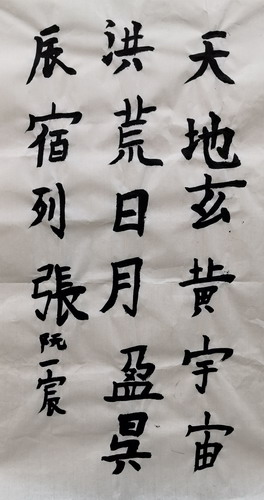 天地玄黄宇宙
洪荒日月盈昃
辰宿列張
阮一宸